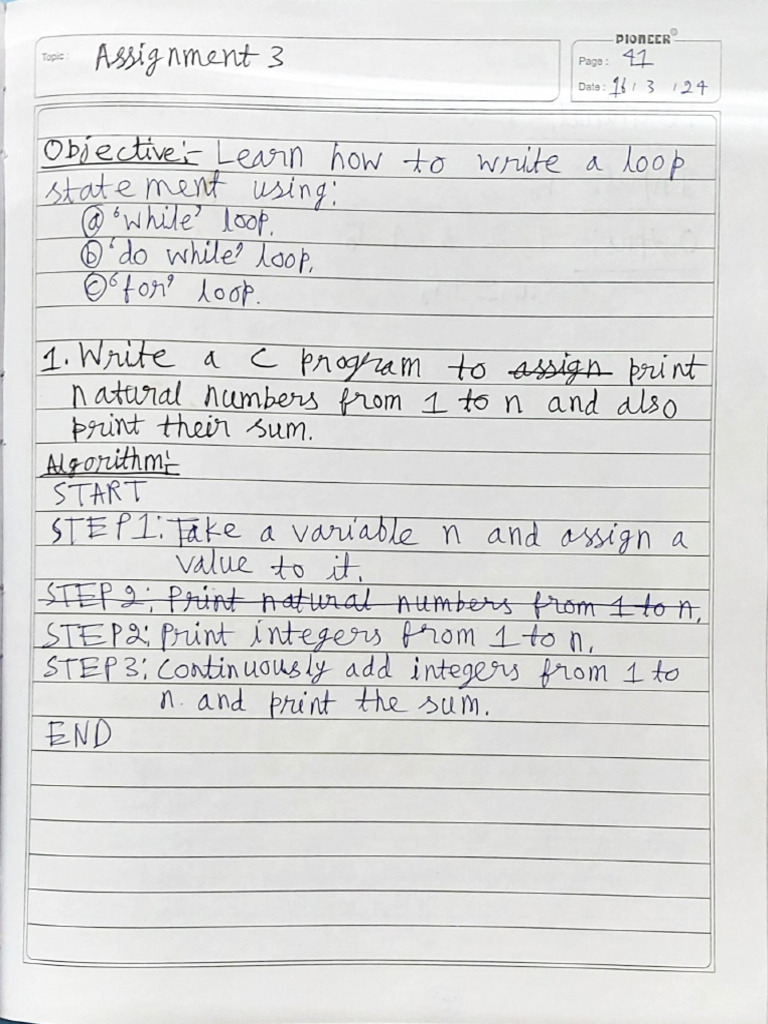 PIONEER
Topic: Assignment 3
Page: 41
Date: 16 / 3 / 24
Objective:- Learn how to write a loop
statement using:
ⓐ 'while' loop.
ⓑ 'do while' loop.
ⓒ 'for' loop.
1. Write a C program to assign print
natural numbers from 1 to n and also
print their sum.
Algorithm:-
START
STEP1: Take a variable n and assign a
value to it.
STEP2: Print natural numbers from 1 to n.
STEP2: Print integers from 1 to n.
STEP3: Continuously add integers from 1 to
n. and print the sum.
END